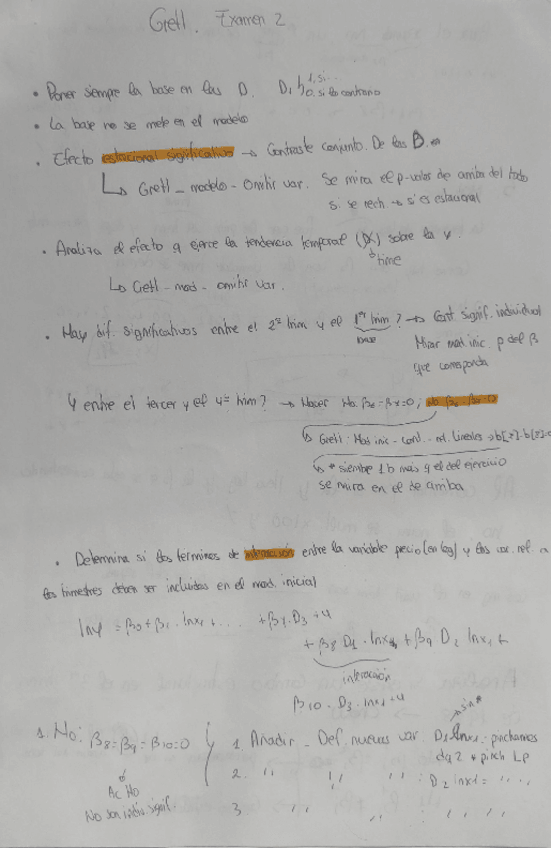 Gretl. Examen 2
• Poner siempre la base en las D. D1 { 1, si... 0, si lo contrario
• La base no se mete en el modelo
• Efecto estacional significativo → Contraste conjunto. De las B.
↳ Gretl - modelo - Omitir var. Se mira el p-valor de arriba del todo
si se rech → sí es estacional
• Analiza el efecto q ejerce la tendencia temporal sobre la y.
time
↳ Gretl - mod - omitir var.
• Hay dif. significativas entre el 2º trim y el 1er trim? → Cont signif. individual
base
Mirar mod. inic. p del β
que corresponda
Y entre el tercer y el 4º trim? → Hacer
↳ Gretl - Mod inic - cont. - rest. lineales →
↳ * siempre 1 b más q el del ejercicio
se mira en el de arriba
• Determina si los términos de interacción entre la variable precio (en log) y las var. rel. a
los trimestres deben ser incluidas en el mod. inicial
lny = β0 + β1 · lnx1 + ... + β7 · D3 + u
+ β8 D1 · lnx1 + β9 D2 lnx1 +
interacción
β10 · D3 · lnx1 + u
sin *
1. H0: β8 = β9 = β10 = 0 1. Añadir - Def nuevas var. D1lnx1 = pinchamos
dq2 * pinch Lp
2. " " " : D2 lnx1 = " " "
Ac H0
No son indiv. signif.
3. " " " " " "